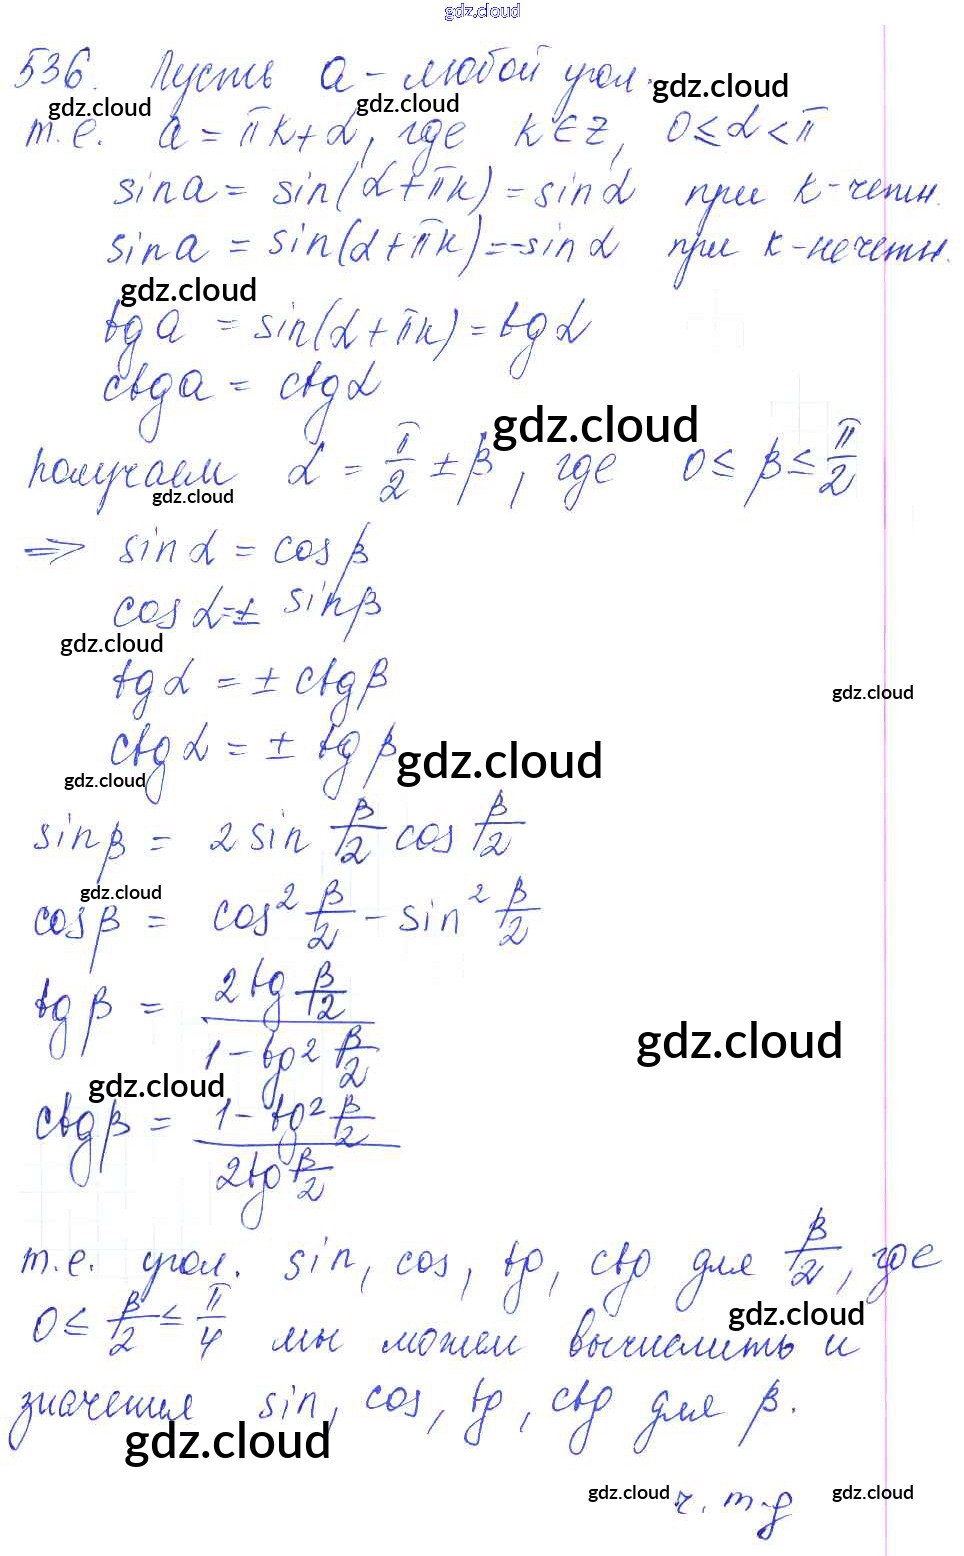 gdz.cloud
536. Пусть a - любой угол.
gdz.cloud gdz.cloud gdz.cloud
т.е. a = πk + α, где k ∈ Z, 0 ≤ α < π
sin a = sin(α + πk) = sin α при k - четн.
sin a = sin(α + πk) = - sin α при k - нечетн.
gdz.cloud
tg a = sin(α + πk) = tg α
ctg a = ctg α
gdz.cloud
получаем α = π/2 ± β, где 0 ≤ β ≤ π/2
gdz.cloud
=> sin α = cos β
cos α = ± sin β
gdz.cloud
tg α = ± ctg β
gdz.cloud
ctg α = ± tg β
gdz.cloud
gdz.cloud
sin β = 2 sin β/2 cos β/2
gdz.cloud
cos β = cos² β/2 - sin² β/2
tg β = (2 tg β/2)/(1 - tg² β/2)
gdz.cloud
gdz.cloud
ctg β = (1 - tg² β/2)/(2 tg β/2)
т.е. угол. sin, cos, tg, ctg для β/2, где
gdz.cloud
0 ≤ β/2 ≤ π/4 мы можем вычислить и
значения sin, cos, tg, ctg для β.
gdz.cloud
gdz.cloud ч.т.д gdz.cloud